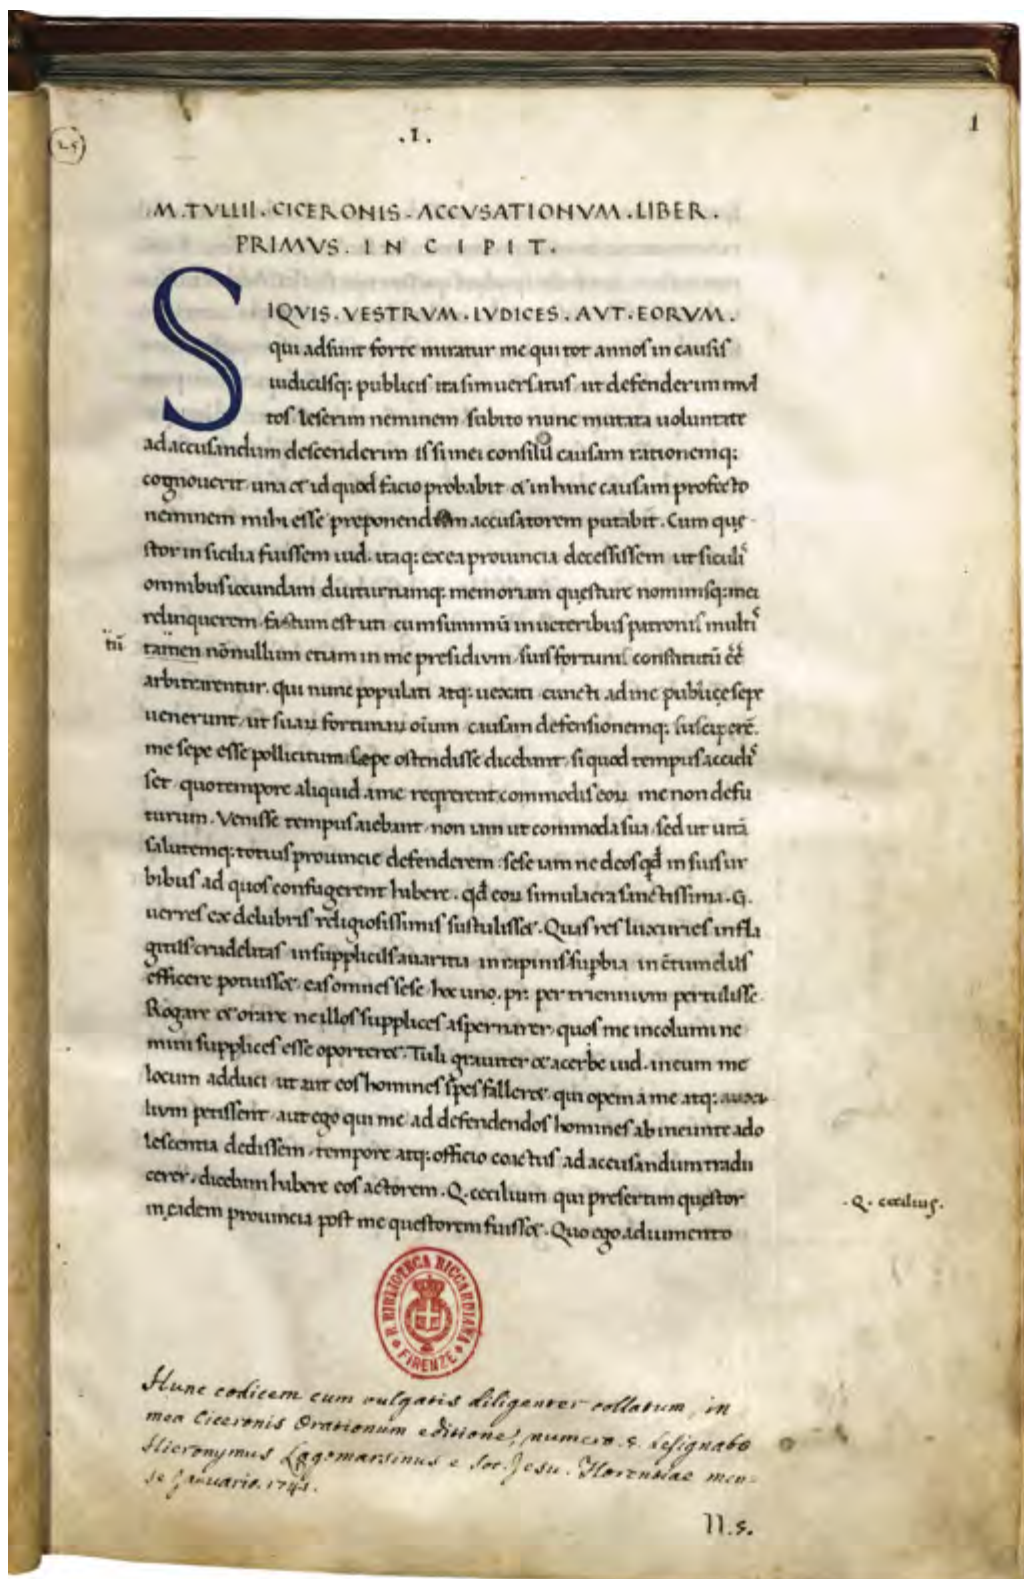 25
.I.
1
M.TVLLII.CICERONIS.ACCVSATIONVM.LIBER.
PRIMVS.INCIPIT.
SIQVIS.VESTRVM.IVDICES.AVT.EORVM.
qui adsunt forte miratur me qui tot annos in causis
iudiciisq; publicis ita sim uersatus ut defenderim mul
tos leserim neminem subito nunc mutata uoluntate
ad accusandum descenderim is si mei consilii causam rationemq;
cognouerit una & id quod facio probabit & in hinc causam profecto
neminem mihi esse preponendum accusatorem putabit. Cum quę
stor in sicilia fuissem iud. itaq; ex ea prouincia decessissem ut siculis
omnibus iocundam diuturnamq; memoriam questure nominisq; mei
relinquerem. factum est uti cum summū in ueteribus patronis multis
tñ
tamen nōnullum etiam in me presidium suis fortunis constitutū ēē
arbitrarentur. qui nunc populati atq; uexati cuncti ad me publice sepe
uenerunt ut suaꝝ fortunaꝝ oīum causam defensionemq; susciperē.
me sepe esse pollicitum sepe ostendisse dicebant si quod tempus accidis
set quo tempore aliquid a me reqrerent commodis eoꝝ me non defu
turum. Venisse tempus aiebant non iam ut commoda sua sed ut uitā
salutemq; totius prouincie defenderem sese iam ne deos qđ in suis ur
bibus ad quos confugerent habere. qđ eoꝝ simulacra sanctissima. G.
uerres ex delubris religiosissimis sustulisset. Quas res luxuries in fla
gitiis crudelitas in suppliciis auaritia in rapinis supbia in cōtumeliis
efficere potuisset eas omnes sese hoc uno. pr. per triennium pertulisse.
Rogare & orare ne illos supplices aspernarer quos me incolumi ne
mini supplices esse oporteret. Tuli grauiter & acerbe iud. in eum me
locum adduci ut aut eos homines spes falleret qui opem a me atq; auxi
lium petissent aut ego qui me ad defendendos homines ab ineunte ado
lescentia dedissem tempore atq; officio coactus ad accusandum tradu
cerer. dicebam habere eos actorem. Q. cecilium qui presertim quęstor
in eadem prouincia post me questorem fuisset. Quo ego adiumento
.Q. cecilius.
R. BIBLIOTECA RICCARDIANA
FIRENZE
Hunc codicem cum vulgatis diligenter collatum, in
mea Ciceronis Orationum editione, numero. 5. designabo
Hieronymus Lagomarsinus e Soc. Jesu. Florentiae men-
se Januario.
II.5.